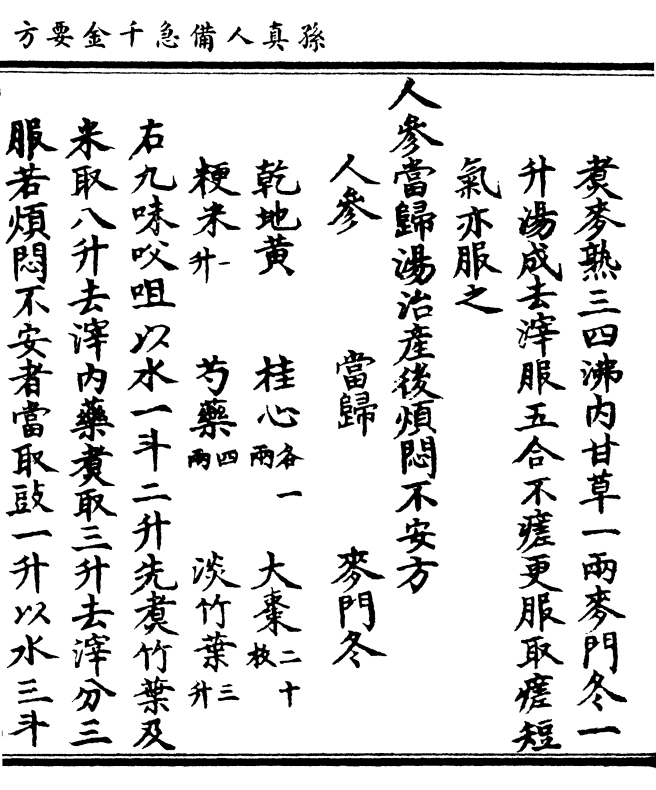 孫真人備急千金要方
煑麥熟三四沸内甘草一兩麥門冬一
升湯成去滓服五合不瘥更服取瘥短
氣亦服之
人參當歸湯治產後煩悶不安方
人參 當歸 麥門冬
乾地黄 桂心各一兩 大棗二十枚
粳米一升 芍藥四兩 淡竹葉三升
右九味㕮咀以水一斗二升先煑竹葉及
米取八升去滓内藥煑取三升去滓分三
服若煩悶不安者當取豉一升以水三斗